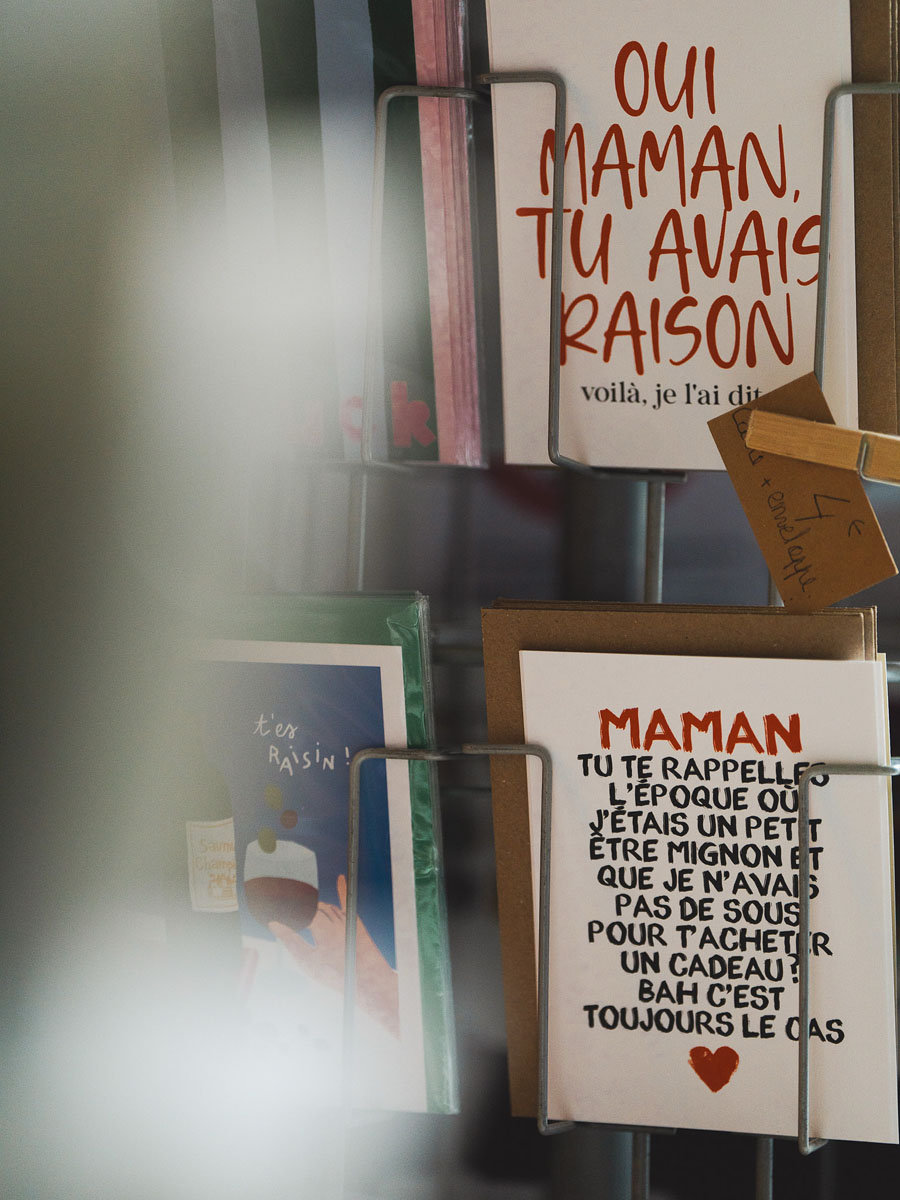 OUI
MAMAN,
TU AVAIS
RAISON
voilà, je l'ai dit
+ enveloppe
4 €
t'es
RAISIN !
MAMAN
TU TE RAPPELLES
L'ÉPOQUE OÙ
J'ÉTAIS UN PETIT
ÊTRE MIGNON ET
QUE JE N'AVAIS
PAS DE SOUS
POUR T'ACHETER
UN CADEAU?
BAH C'EST
TOUJOURS LE CAS